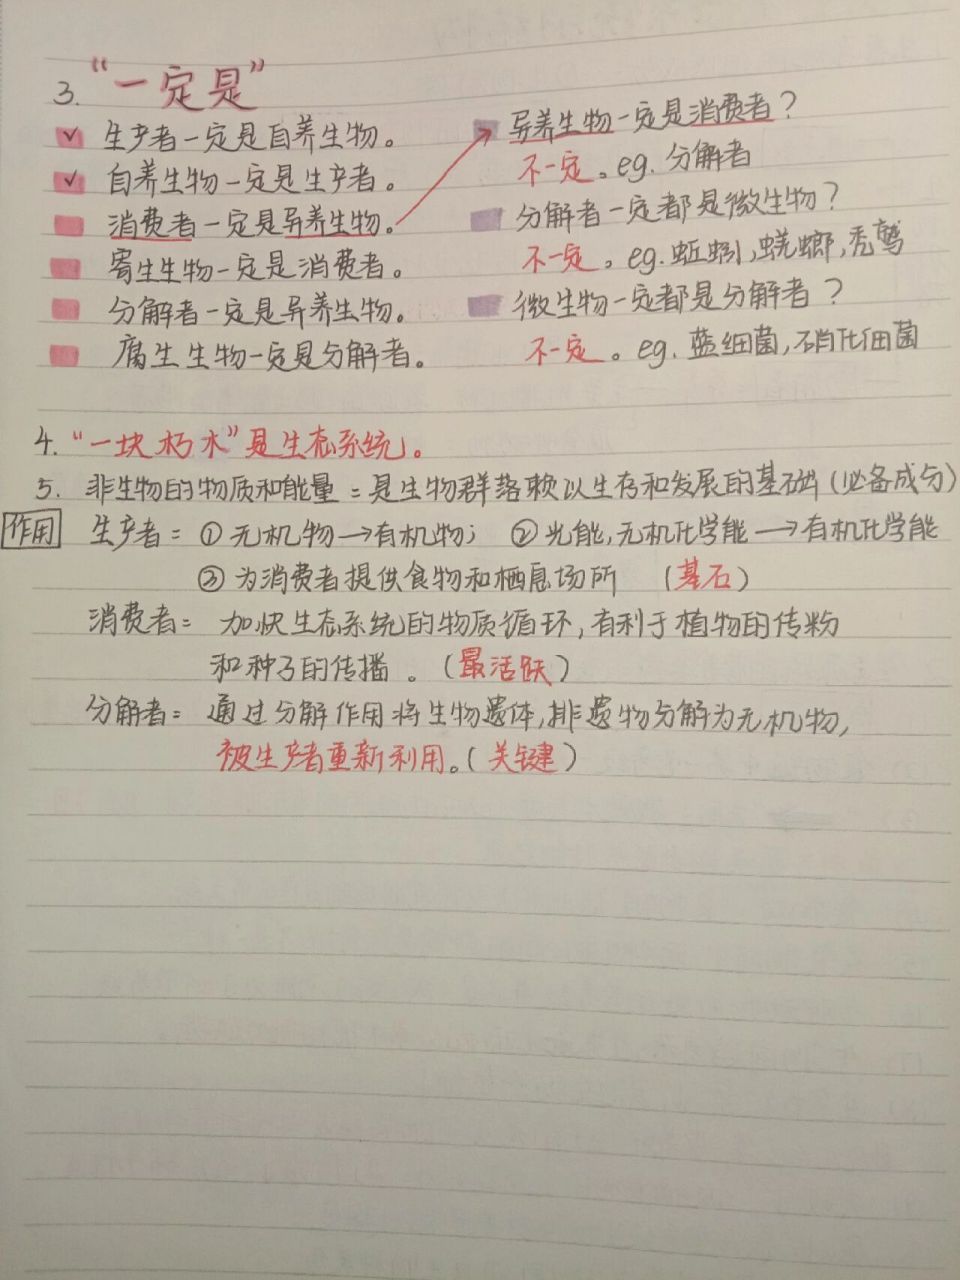 3. “一定是”
✓ 生产者一定是自养生物。
✓ 自养生物一定是生产者。
消费者一定是异养生物。
寄生生物一定是消费者。
分解者一定是异养生物。
腐生生物一定是分解者。
异养生物一定是消费者?
不一定。eg. 分解者
分解者一定都是微生物?
不一定。eg. 蚯蚓,蜣螂,秃鹫
微生物一定都是分解者?
不一定。eg. 蓝细菌,硝化细菌
4. “一块朽木”是生态系统。
5. 非生物的物质和能量:是生物群落赖以生存和发展的基础(必备成分)
作用 生产者:①无机物→有机物; ②光能,无机化学能→有机化学能
③为消费者提供食物和栖息场所 (基石)
消费者:加快生态系统的物质循环,有利于植物的传粉
和种子的传播。(最活跃)
分解者:通过分解作用将生物遗体,排遗物分解为无机物,
被生产者重新利用。(关键)